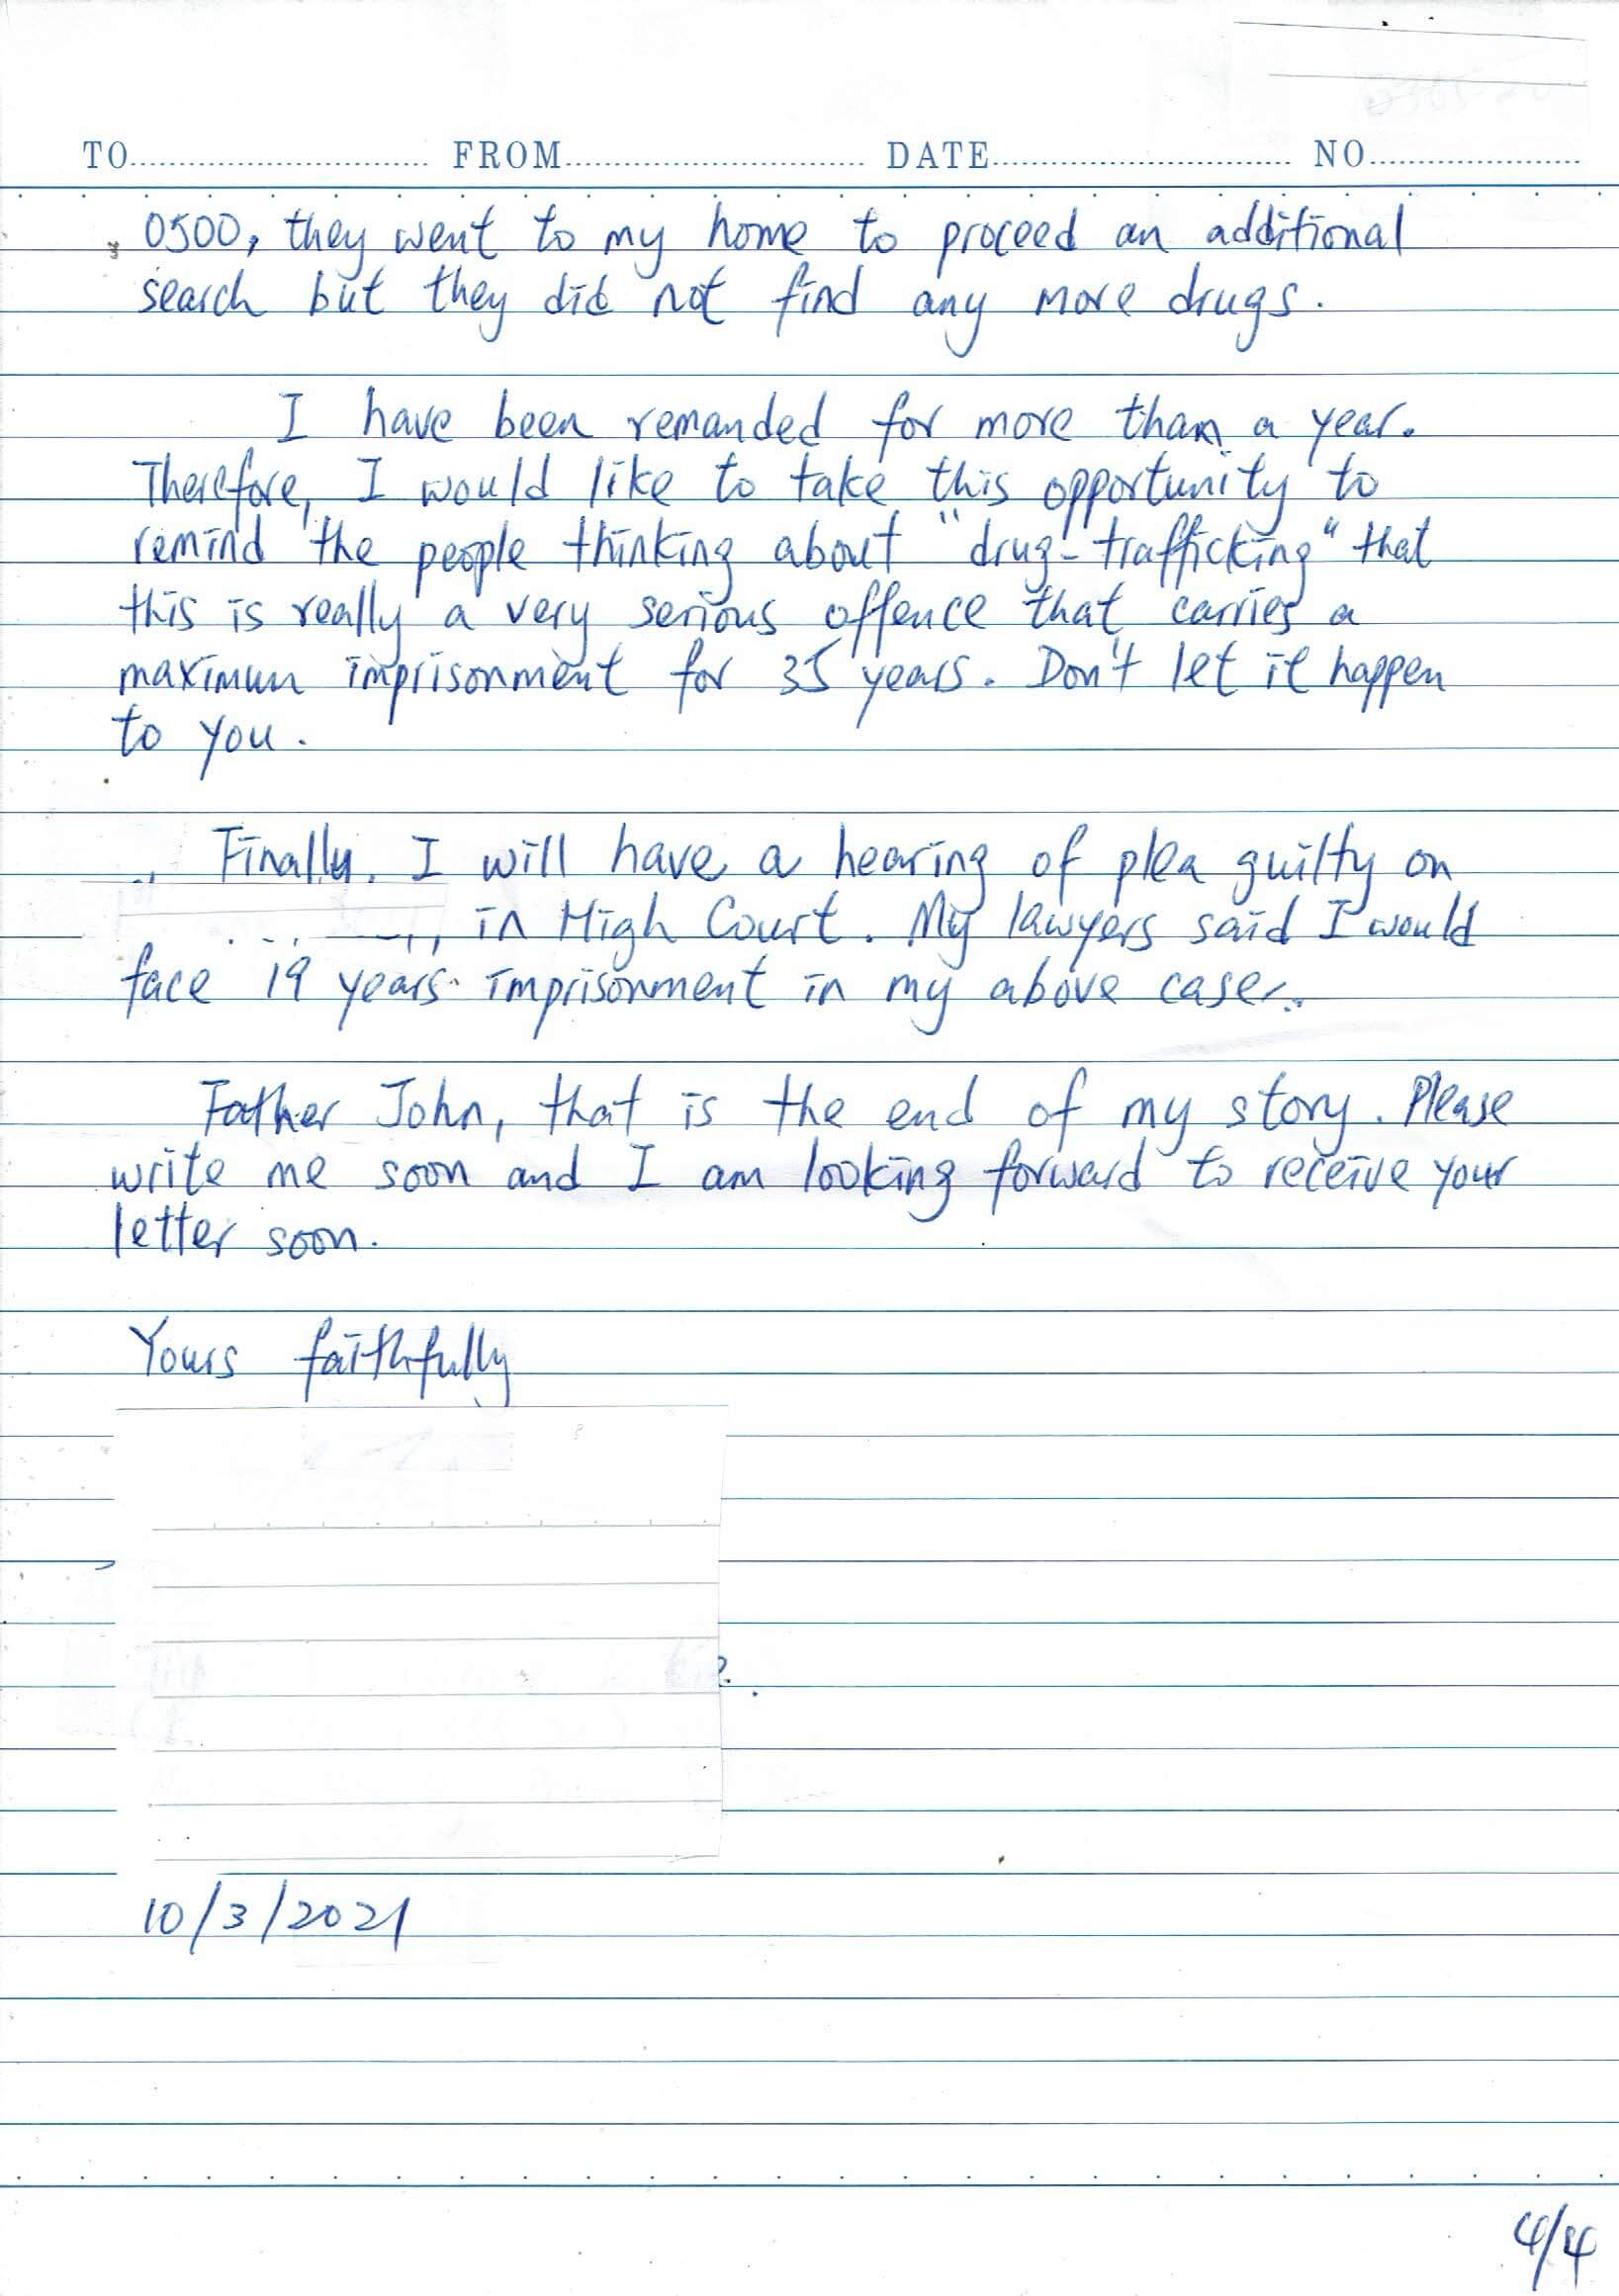 TO FROM DATE NO
0500, they went to my home to proceed an additional
search but they did not find any more drugs.
I have been remanded for more than a year.
Therefore, I would like to take this opportunity to
remind the people thinking about "drug-trafficking" that
this is really a very serious offence that carries a
maximun imprisonment for 35 years. Don't let it happen
to you.
Finally, I will have a hearing of plea guilty on
in High Court. My lawyers said I would
face 19 years imprisonment in my above case.
Father John, that is the end of my story. Please
write me soon and I am looking forward to receive your
letter soon.
Yours faithfully
10/3/2021
4/4